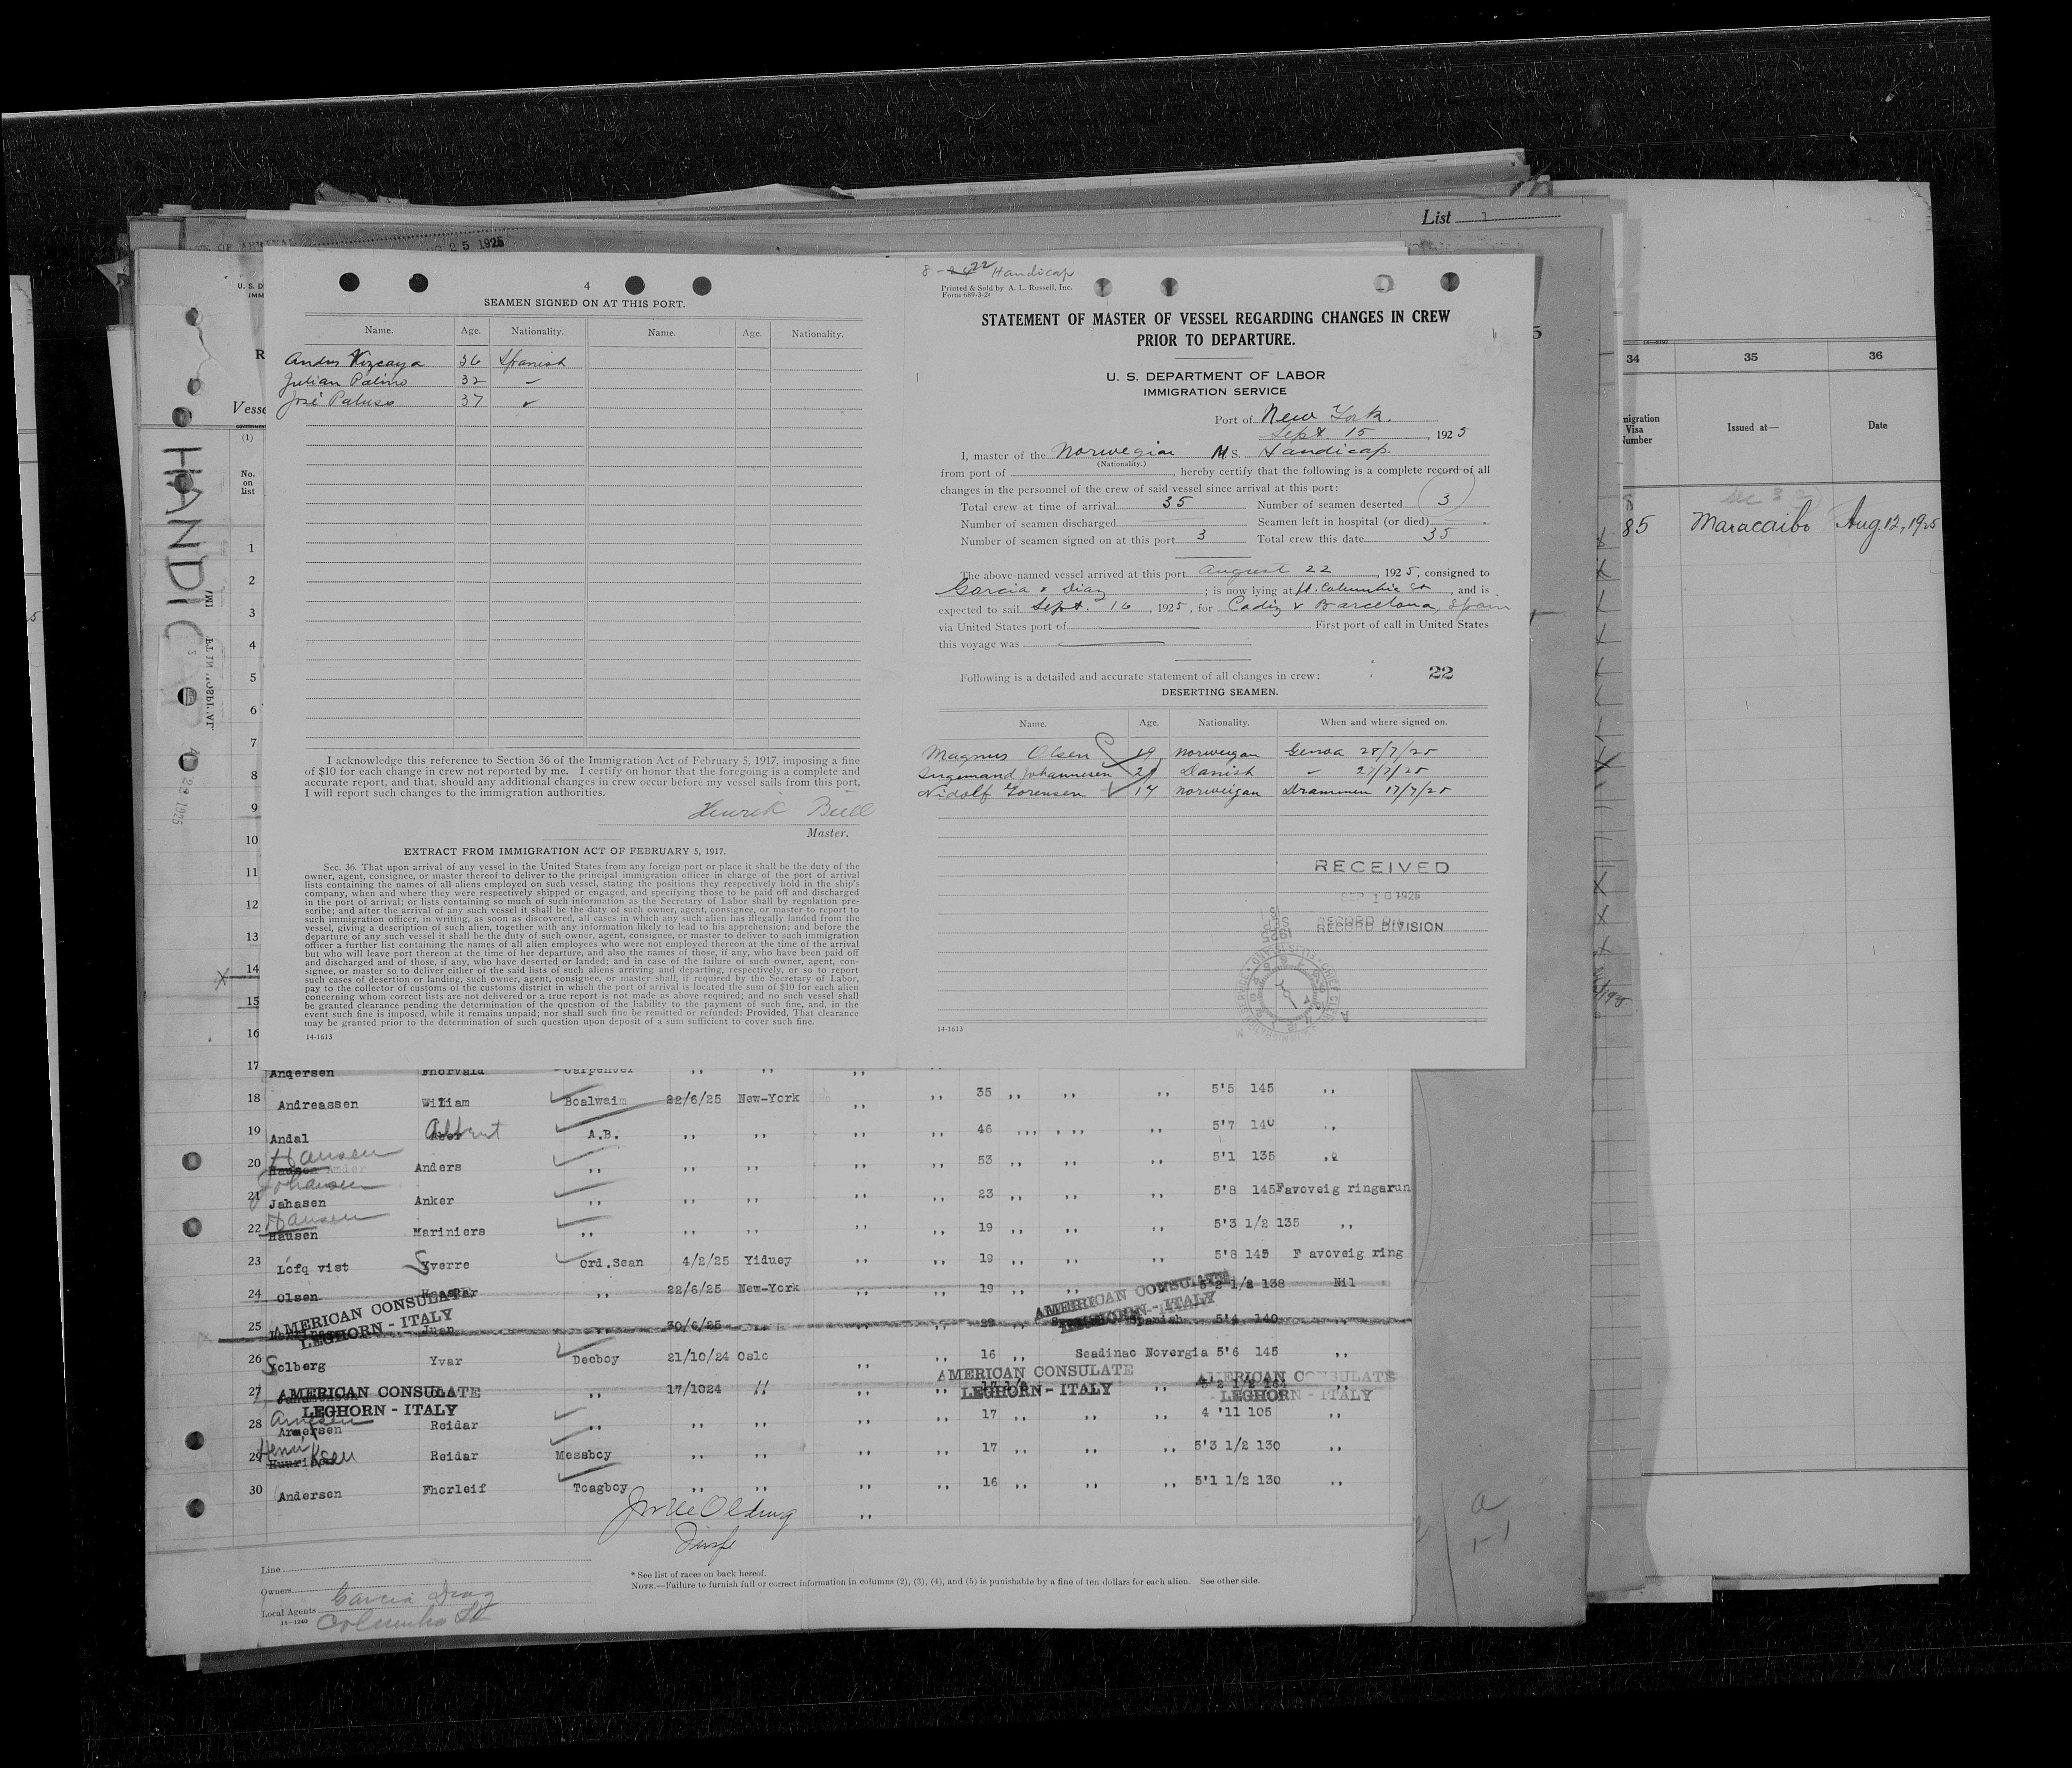 List 1
25 1925
4
SEAMEN SIGNED ON AT THIS PORT.
Name. Age. Nationality. Name. Age. Nationality.
Vizcaya 36 Spanish
Julian Palino 32 "
José 37 "
I acknowledge this reference to Section 36 of the Immigration Act of February 5, 1917, imposing a fine
of $10 for each change in crew not reported by me. I certify on honor that the foregoing is a complete and
accurate report, and that, should any additional changes in crew occur before my vessel sails from this port,
I will report such changes to the immigration authorities.
Henrik Bull
Master.
EXTRACT FROM IMMIGRATION ACT OF FEBRUARY 5, 1917.
Sec. 36. That upon arrival of any vessel in the United States from any foreign port or place it shall be the duty of the
owner, agent, consignee, or master thereof to deliver to the principal immigration officer in charge of the port of arrival
lists containing the names of all aliens employed on such vessel, stating the positions they respectively hold in the ship's
company, when and where they were respectively shipped or engaged, and specifying those to be paid off and discharged
in the port of arrival; or lists containing so much of such information as the Secretary of Labor shall by regulation pre-
scribe; and after the arrival of any such vessel it shall be the duty of such owner, agent, consignee, or master to report to
such immigration officer, in writing, as soon as discovered, all cases in which any such alien has illegally landed from the
vessel, giving a description of such alien, together with any information likely to lead to his apprehension; and before the
departure of any such vessel it shall be the duty of such owner, agent, consignee, or master to deliver to such immigration
officer a further list containing the names of all alien employees who were not employed thereon at the time of the arrival
but who will leave port thereon at the time of her departure, and also the names of those, if any, who have been paid off
and discharged and of those, if any, who have deserted or landed; and in case of the failure of such owner, agent, con-
signee, or master so to deliver either of the said lists of such aliens arriving and departing, respectively, or so to report
such cases of desertion or landing, such owner, agent, consignee, or master shall, if required by the Secretary of Labor,
pay to the collector of customs of the customs district in which the port of arrival is located the sum of $10 for each alien
concerning whom correct lists are not delivered or a true report is not made as above required; and no such vessel shall
be granted clearance pending the determination of the question of the liability to the payment of such fine, and, in the
event such fine is imposed, while it remains unpaid; nor shall such fine be remitted or refunded: Provided, That clearance
may be granted prior to the determination of such question upon deposit of a sum sufficient to cover such fine.
14-1613
8-22 Handicap
Printed & Sold by A. L. Russell, Inc.
Form 689-3-24
STATEMENT OF MASTER OF VESSEL REGARDING CHANGES IN CREW
PRIOR TO DEPARTURE.
U. S. DEPARTMENT OF LABOR
IMMIGRATION SERVICE
Port of New York.
Sept. 15, 1925
I, master of the Norwegian M.S. Handicap.
(Nationality.)
from port of , hereby certify that the following is a complete record of all
changes in the personnel of the crew of said vessel since arrival at this port:
Total crew at time of arrival 35 Number of seamen deserted 3
Number of seamen discharged Seamen left in hospital (or died)
Number of seamen signed on at this port 3 Total crew this date 35
The above-named vessel arrived at this port August 22, 1925, consigned to
Garcia & Diaz ; is now lying at ft. Columbia St , and is
expected to sail Sept. 16, 1925, for Cadiz & Barcelona, Spain
via United States port of First port of call in United States
this voyage was
Following is a detailed and accurate statement of all changes in crew: 22
DESERTING SEAMEN.
Name. Age. Nationality. When and where signed on.
Magnus Olsen 19 Norweigan Genoa 28/7/25
Ingemand Johannesen Danish " 27/7/25
Nidolf Sorensen Norweigan Drammen 17/7/25
RECEIVED
SEP 16 1925
RECORD DIVISION
34 35 36
migration
Visa
Number
Issued at— Date
85 Maracaibo Aug. 12, 1925
U. S. D
IMM
R
Vesse
(1)
No.
on
list
HANDICAP
1
2
3
4
5
6
7
8
9
10
11
12
13
14
15
16
17 Andersen Fhorvald Carpenter ,, ,, ,,
18 Andreassen William Boalwaim 22/6/25 New-York ,, ,, 35 ,, ,, ,, 5'5 145 ,,
19 Andal Albert A.B. ,, ,, ,, ,, 46 ,, ,, ,, 5'7 140 ,,
20 Hansen Anders ,, ,, ,, ,, ,, 53 ,, ,, ,, 5'1 135 ,,
Johansen
21 Jahasen Anker ,, ,, ,, ,, ,, 23 ,, ,, ,, 5'8 145 Favoveig ringarun
Hansen
22 Hausen Mariniers ,, ,, ,, ,, ,, 19 ,, ,, ,, 5'3 1/2 135 ,,
23 Lofq vist Syverre Ord.Sean 4/2/25 Yiduey ,, ,, 19 ,, ,, ,, 5'8 145 F avoveig ring
24 Olsen ,, 22/6/25 New-York ,, ,, 19 ,, 5'2 1/2 138 Nil
AMERICAN CONSULATE
LEGHORN - ITALY
AMERICAN CONSULATE
LEGHORN - ITALY
25 Juan ,, 30/6/25 ,, ,, 29 ,, Spanish 5'4 140 ,,
26 Solberg Yvar Decboy 21/10/24 Oslo ,, ,, 16 ,, Seadinac Novergia 5'6 145 ,,
27 ,, 17/1024 ,, ,, ,, ,, 5'2 1/2 ,,
AMERICAN CONSULATE
LEGHORN - ITALY
AMERICAN CONSULATE
LEGHORN - ITALY
AMERICAN CONSULATE
LEGHORN - ITALY
Arnesen
28 Reidar ,, ,, ,, ,, ,, 17 ,, ,, ,, 4'11 105 ,,
29 Henriksen Reidar Messboy ,, ,, ,, ,, 17 ,, ,, ,, 5'3 1/2 130 ,,
30 Andersen Fhorleif Toagboy ,, ,, ,, ,, 16 ,, ,, ,, 5'1 1/2 130 ,,
Line
Owners
Local Agents
Garcia Diaz
Columbia St
14-1240
* See list of races on back hereof.
NOTE.—Failure to furnish full or correct information in columns (2), (3), (4), and (5) is punishable by a fine of ten dollars for each alien. See other side.